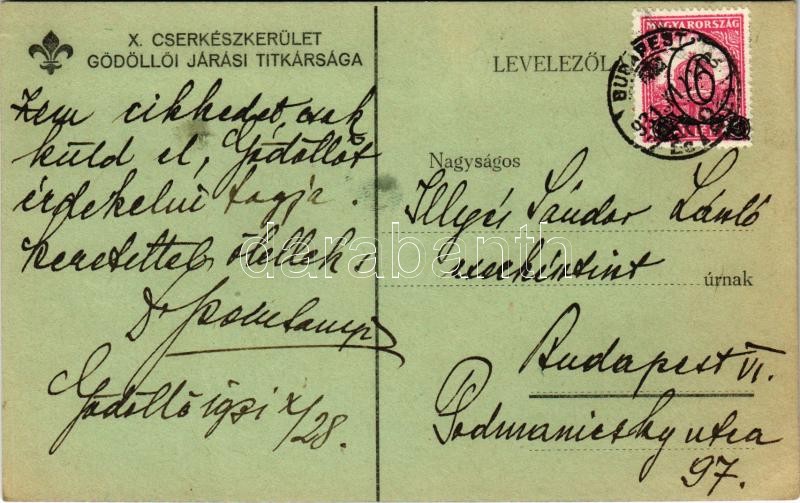 X. CSERKÉSZKERÜLET
GÖDÖLLŐI JÁRÁSI TITKÁRSÁGA
cikkedet csak
küld el, Gödöllőt
érdekelni fogja.
ölellek:
Dr
Gödöllő X/28.
LEVELEZŐL
MAGYARORSZÁG
BUDAPEST
6
Nagyságos
Illyés Sándor László
úrnak
Budapest VI.
Podmaniczky utca
97.
darabanth